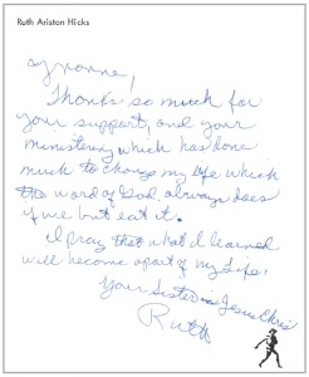 Ruth Ariston Hicks
Yvonne,
Thanks so much for
your support, and your
ministering which has done
much to change my life which
the word of God always does
if we but eat it.
I pray that what I learned
will become apart of my Life.
Your Sister in Jesus Chris
Ruth